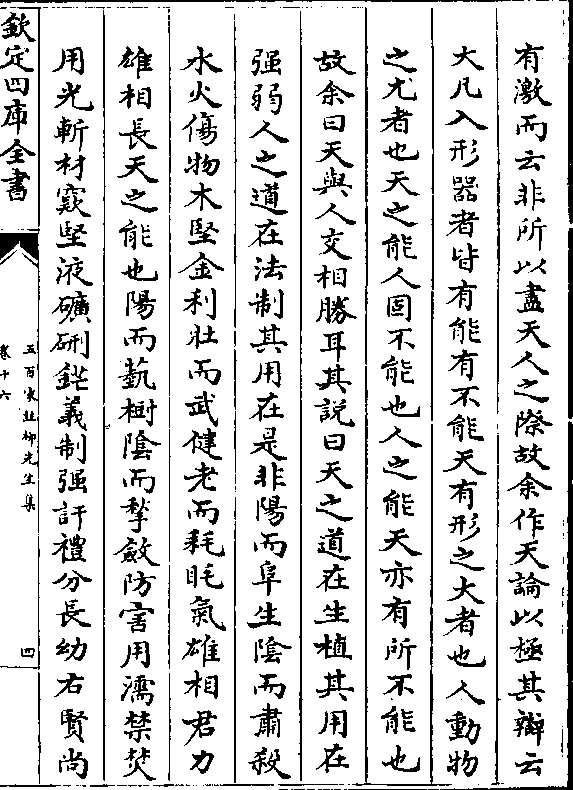 有激而云非所以盡天人之際故余作天論以極其辯云
大凡入形器者皆有能有不能天有形之大者也人動物
之尤者也天之能人固不能也人之能天亦有所不能也
故余曰天與人交相勝耳其說曰天之道在生植其用在
强弱人之道在法制其用在是非陽而阜生陰而肅殺
水火傷物木堅金利壯而武健老而耗眊氣雄相君力
雄相長天之能也陽而蓺樹陰而揫斂防害用濡禁焚
用光斬材窽堅液礦硎鋩義制强訐禮分長幼右賢尚
欽定四庫全書
五百家註柳先生集
卷十六
四